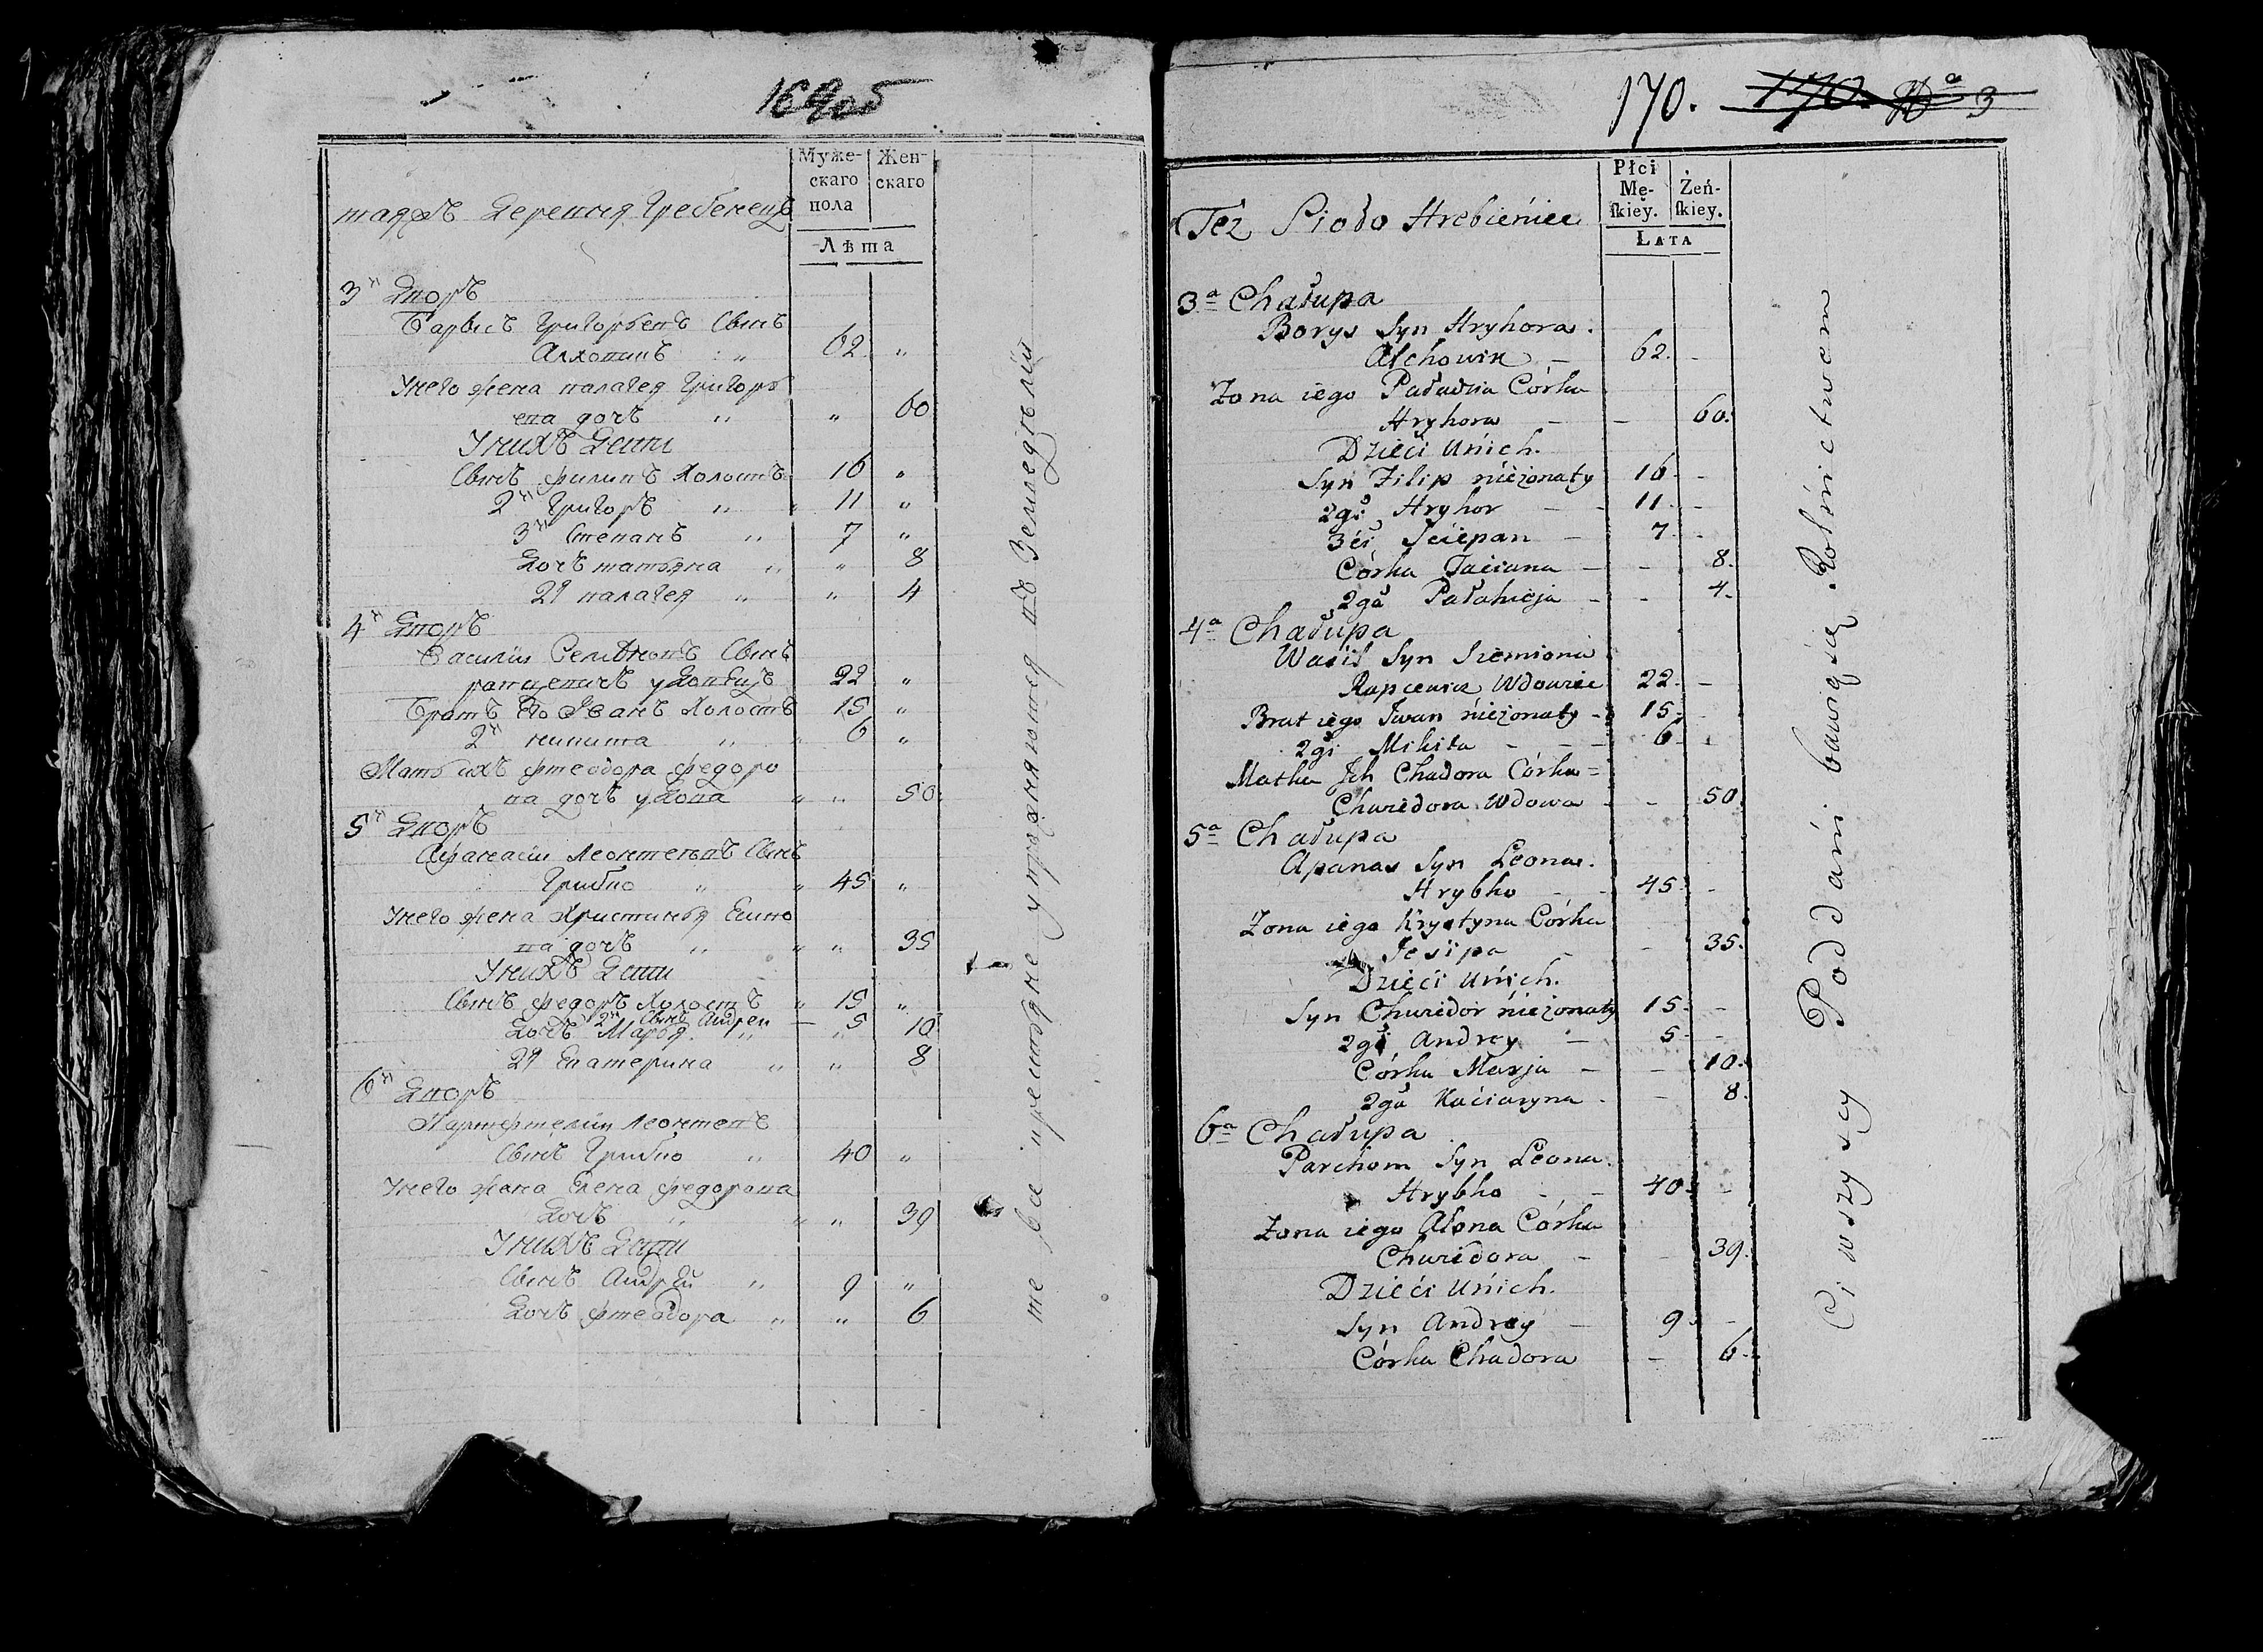 169об
Муже-
скаго
пола
Жен-
скаго
Лѣта
таяжъ Деревня Гребенецъ
3й Дворъ
Барысъ Григорьевъ Сынъ
Алховикъ 62 "
У него жена палагея Григорь
ева дочь " 60
У нихъ Дети
Сынъ филипъ Холостъ 16 "
2й Григоръ " 11 "
3й Степанъ " 7 "
Дочь татьяна " " 8
2я палагея " " 4
4й Дворъ
Василій Семіоновъ Сынъ
рапцевичъ удовецъ 22 "
Братъ Его Иванъ Холостъ 15 "
2й никита " 6 "
Мать ихъ фтеодора федоро
ва дочь удова " " 50
5й Дворъ
Афанасій Леонтевъ Сынъ
Грибко " 45 "
У него жена Христинья Есипо
ва дочь " " 35
У нихъ Дети
Сынъ федоръ Холостъ " 15 "
2й Сынъ Андреи — 5
Дочь Марья " " 10
2я Екатерина " " 8
6й Дворъ
Леонтевъ
Сынъ Грибко " 40 "
У него жена Елена федорова
Дочь " " 39
У нихъ Дети
Сынъ Андрей " 9 "
Дочь фтеодора " " 6
те всѣ крестьяне упражняются въ Земледѣліи
170. 170 3
Płci
Mę-
ſkiey.
Żeń-
ſkiey.
Lata
Też Sioło Hrebieńiec
3a Chałupa
Borys Syn Hryhora.
Alchowik — 62. -
Zona iego Pałachia Córka
Hryhora — — 60.
Dzieći Unich.
Syn Filip nieżonaty 16 -
2gi Hryhor — 11 -
3ći Sćiepan — 7 -
Córka Taciana — - 8.
2ga Pałahieja - - 4.
4a Chałupa
Wasil Syn Siemiona
Rapcewicz Wdowiec 22. —
Brat iego Iwan nieżonaty - 15 -
2gi Mikita - - 6 -
Matka Ich Chadora Córka =
Chwiedora Wdowa - - 50
5a Chałupa
Apanas Syn Leona.
Hrybko - 45. -
Zona iego Krystyna Córka
Jesipa - - 35.
Dzieći Unich.
Syn Chwiedor nieżonaty 15. -
2gi Andrey — 5 -
Córka Marja - — 10.
2ga Kaćiaryna - - 8.
6a Chałupa
Parchom Syn Leona.
Hrybko - - 40. -
Zona iego Alona Córka
Chwiedora - - 39.
Dzieći Unich.
Syn Andrey — 9. -
Córka Chadora — 6.
Ci wszyscy Poddani bawią się Rolnictwem